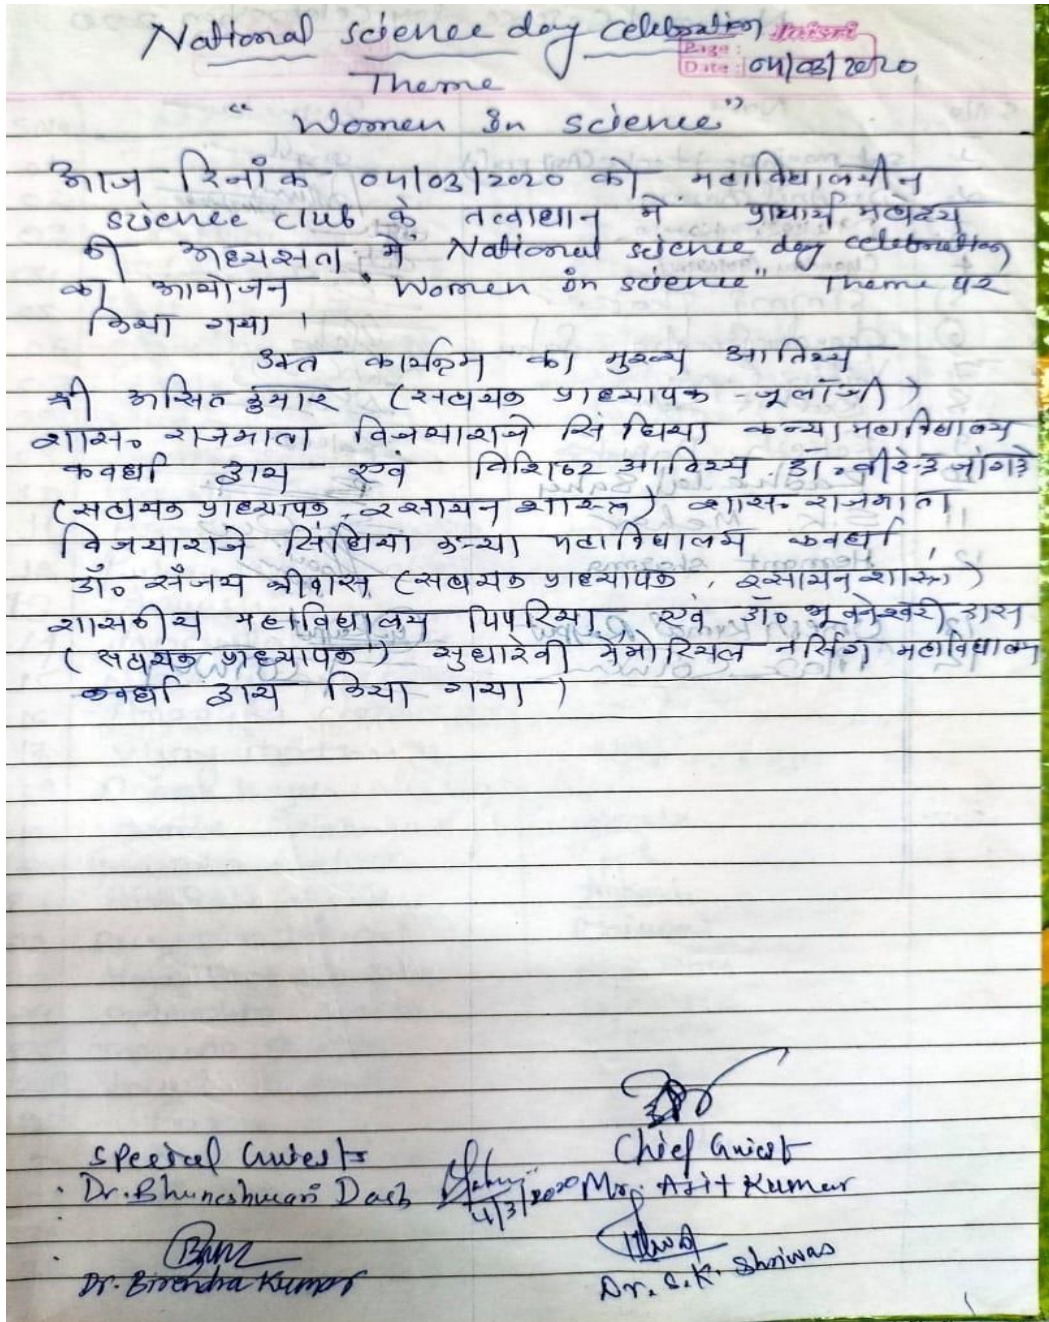 National science day celebration
Jaisri
Page:
Date: 04/03/2020
Theme
"Women In science"
आज दिनांक 04/03/2020 को महाविद्यालयीन
science club के तत्वाधान में प्राचार्य महोदय
की अध्यक्षता में National science day celebration
का आयोजन "Women In science" Theme पर
किया गया।
उक्त कार्यक्रम का मुख्य आतिथ्य
श्री असित कुमार (सहायक प्राध्यापक - जूलॉजी)
शास० राजमाता विजयाराजे सिंधिया कन्या महाविद्यालय
कवर्धा द्वारा एवं विशिष्ट आतिथ्य डॉ० वीरेन्द्र जांगड़े
(सहायक प्राध्यापक, रसायन शास्त्र) शास० राजमाता
विजयाराजे सिंधिया कन्या महाविद्यालय कवर्धा,
डॉ० संजय श्रीवास (सहायक प्राध्यापक, रसायन शास्त्र)
शासकीय महाविद्यालय पिपरिया एवं डॉ० भूवनेश्वरी दास
(सहायक प्राध्यापक) सुधादेवी मेमोरियल नर्सिंग महाविद्यालय
कवर्धा द्वारा किया गया।
Special Guests
Chief Guest
Dr. Bhuneshwari Dash 4/3/2020 Mr. Asit Kumar
Dr. Birendra Kumar
Dr. S.K. Shriwas